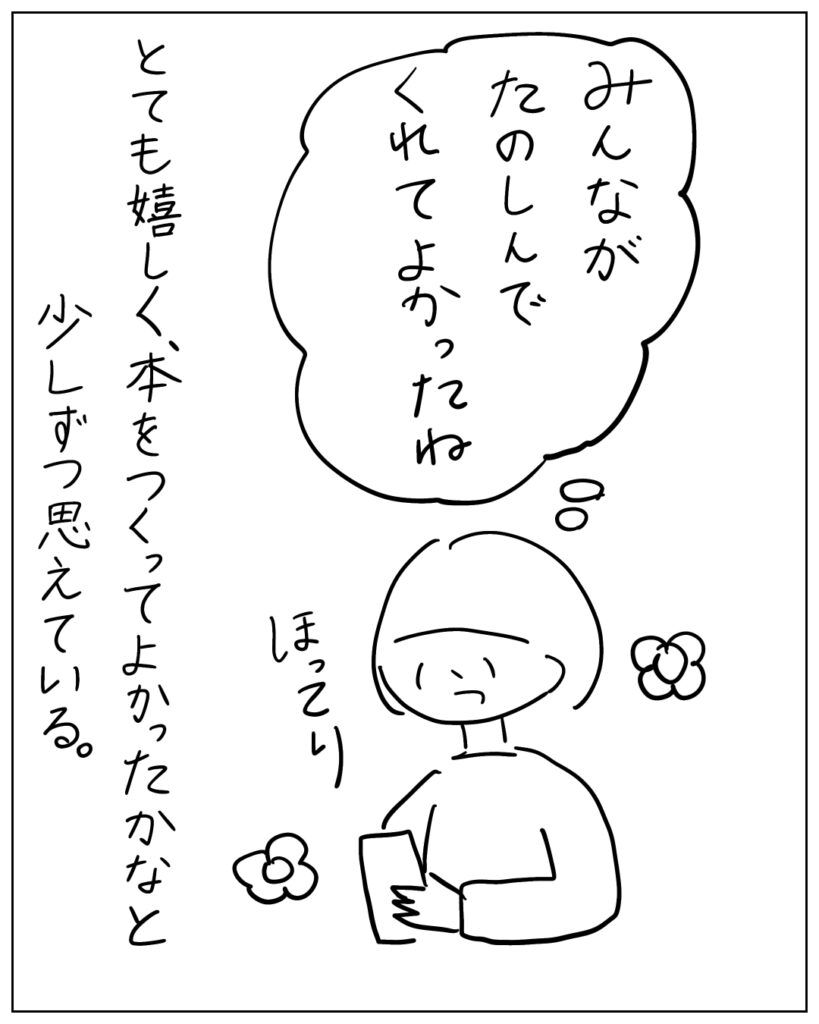 みんなが
たのしんで
くれてよかったね
ほってり
とても嬉しく、本をつくってよかったかなと
少しずつ思えている。